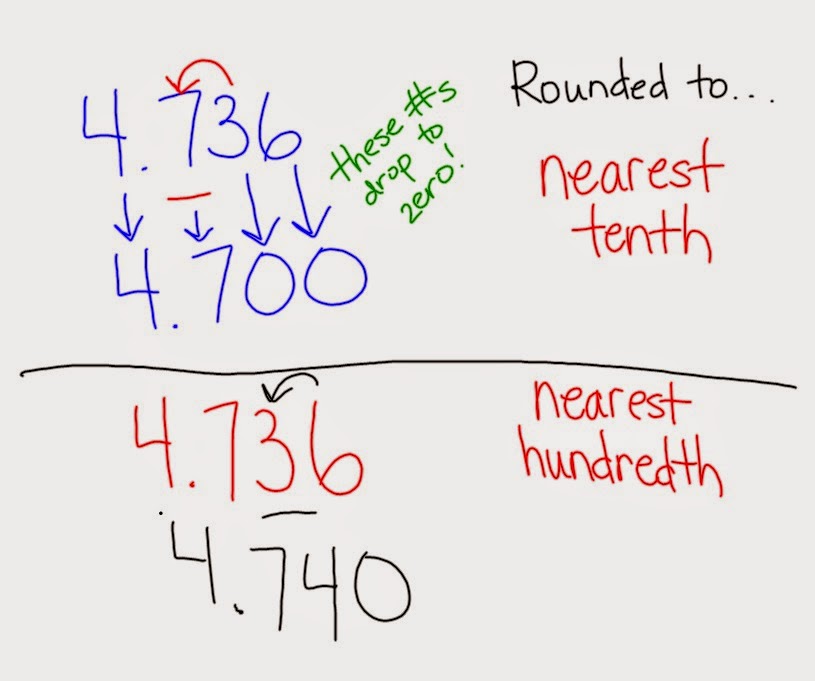 Rounded to...
4.736
these #s
drop to
zero!
nearest
tenth
4.700
4.736
nearest
hundredth
4.740